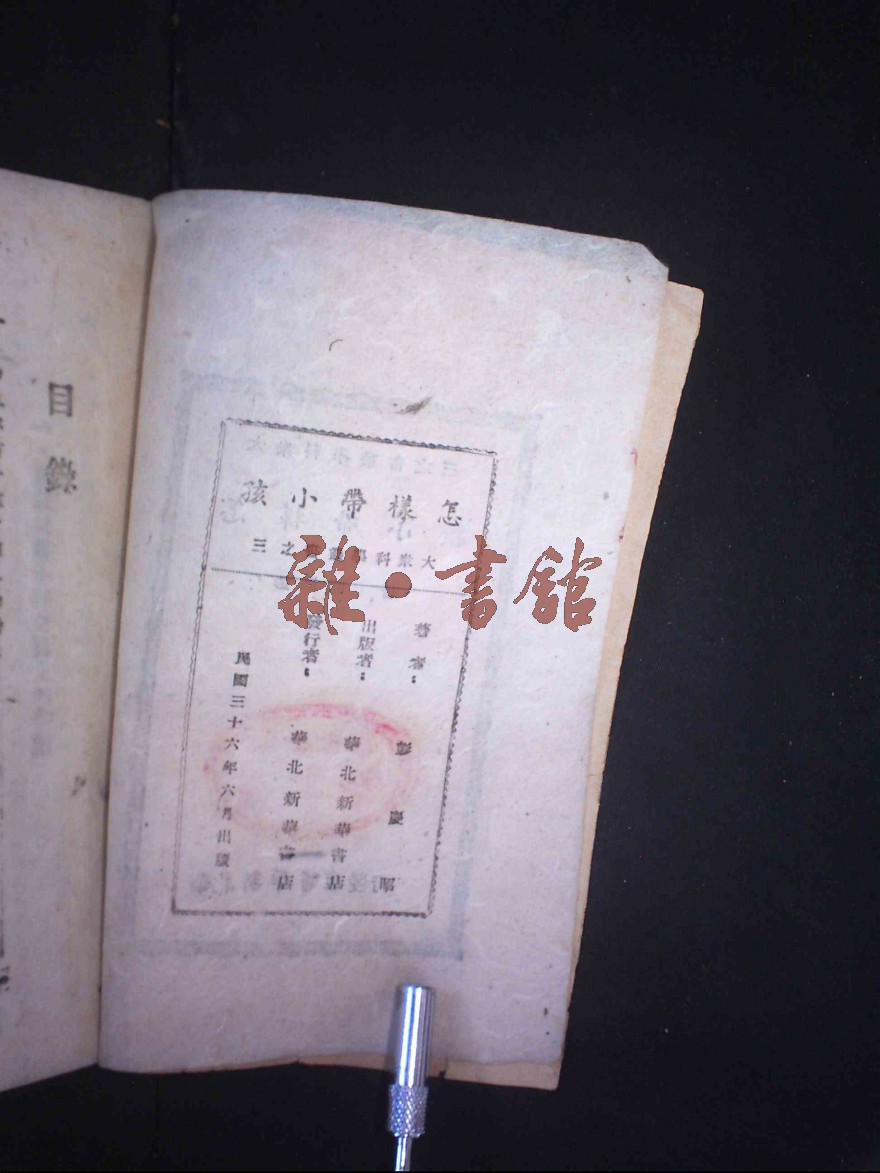 怎樣帶小孩
大衆科學叢書之三
著者：彭慶昭
出版者：華北新華書店
發行者：華北新華書店
民國三十六年六月出版
目錄
雜·書館